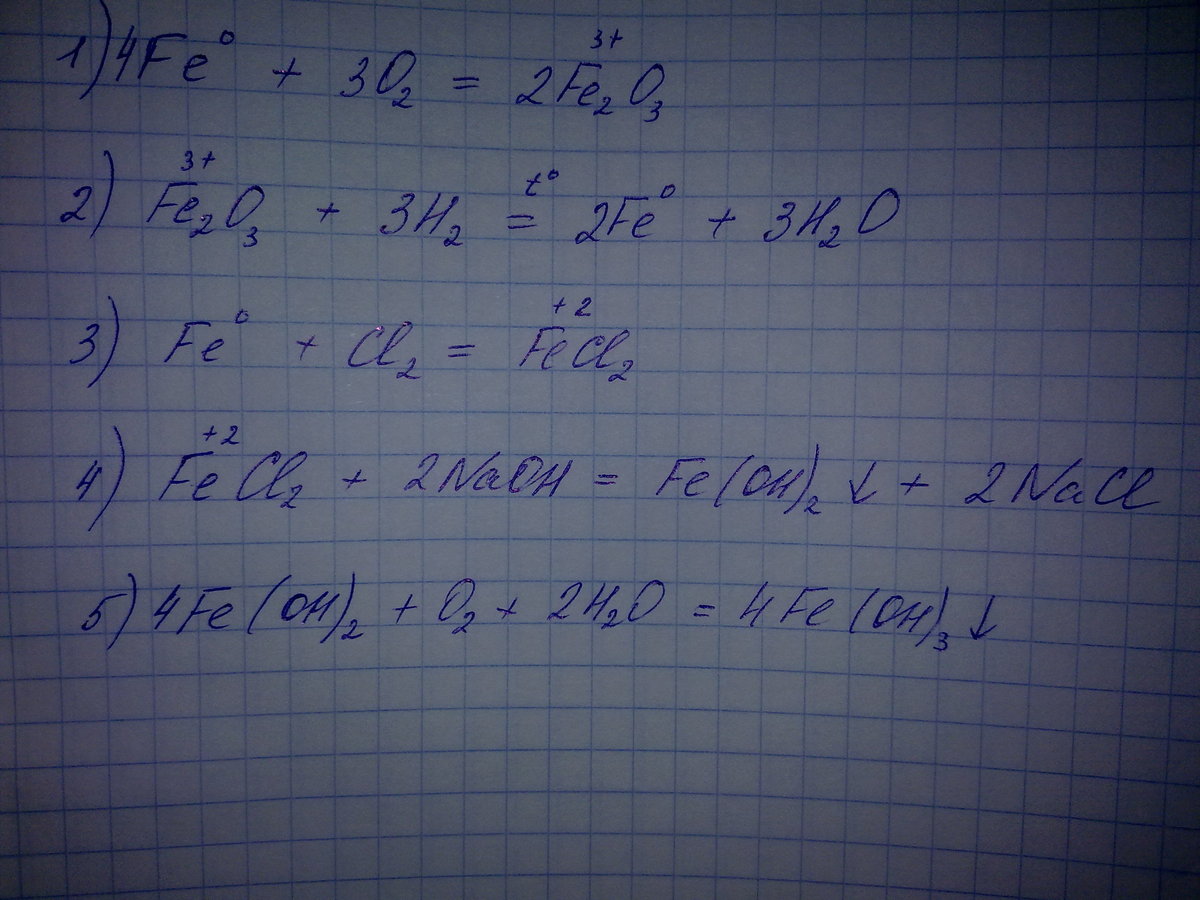 1) 4Fe⁰ + 3O₂ = 2Fe₂³⁺O₃
2) Fe₂³⁺O₃ + 3H₂ =^t° 2Fe⁰ + 3H₂O
3) Fe⁰ + Cl₂ = Fe⁺²Cl₂
4) Fe⁺²Cl₂ + 2NaOH = Fe(OH)₂↓ + 2NaCl
5) 4Fe(OH)₂ + O₂ + 2H₂O = 4Fe(OH)₃↓